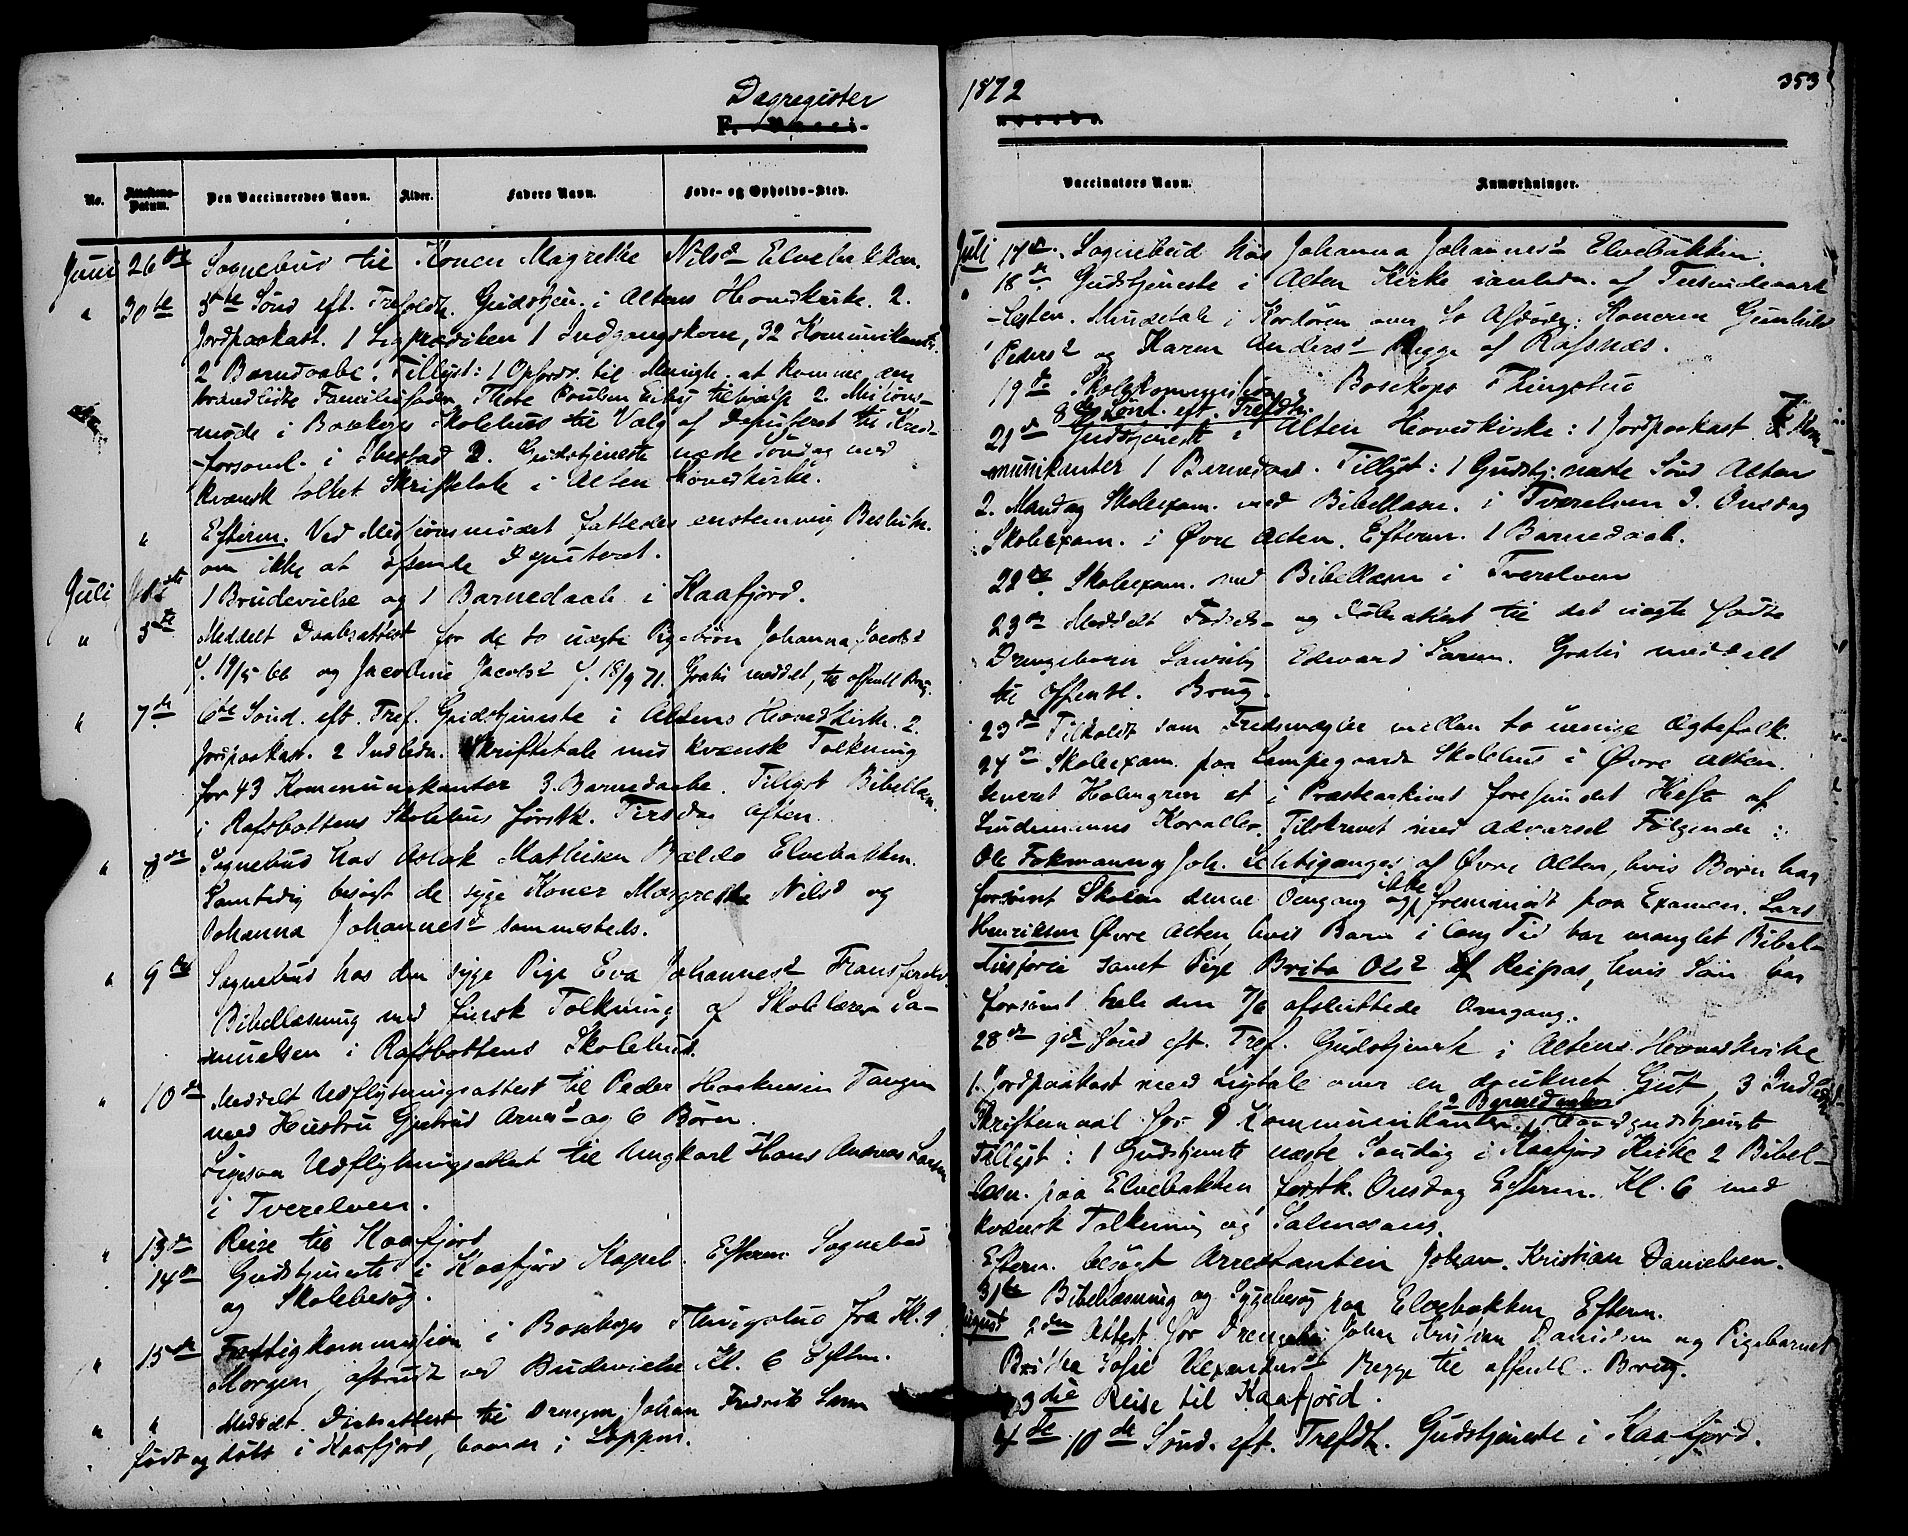 Dagregister
F. Vacci-
No.
Attestens Datum.
Den Vaccineredes Navn.
Alder.
Faders Navn.
Føde- og Opholds-Sted.
Juni 26de Sognebud til Konen Magrethe Nilsd Elvebakken.
" 30te 5te Sønd eft. Trefoldh. Gudstjen. i Altens Hovedkirke. 2.
Jordpaakast. 1 Ligprædiken 1 Indgangskone, 32 Kommunikanter.
2 Barnedaabe. Tillyst: 1 Opfordr. til Menigh. at komme den
brandlidte Familiefader Thobe Poulsen til hjælp 2. Missions-
møde i Bosekops Skolehus til Valg af Deputeret til Kreds-
forsaml. i Ibestad 2. Gudstjeneste næste Søndag med
kvænsk tolket Skriftetale i Alten Hovedkirke.
" Efterm. Ved Missionsmødet fattedes enstemmig Beslutn.
om ikke at afsende Deputeret.
Juli 1 Brudevielse og 1 Barnedaab i Kaafjord.
" 5te Meddelt Daabsattest for de to uægte Pigebørn Johanna Jacobsd
f. 19/5 66 og Jacobine Jacobsd f. 18/9 71. Gratis meddelt, til offentl Brug.
" 7de 6te Sønd. eft. Tref. Gudstjeneste i Altens Hovedkirke. 2.
Jordpaakast. 2 Indledn. Skriftetale med kvænsk Tolkning
for 43 Kommunikanter 3 Barnedaabe. Tillyst Bibellæsn.
i Rafsbottens Skolehus førstk. Tirsdag Aften.
" 8de Sognebud hos Aslak Mathisen Elvebakken.
Samtidig besøgt de syge Koner Margrethe Nilsd og
Johanna Johannesd sammesteds.
" 9de Sognebud hos den syge Pige Eva Johannesd
Bibellæsning med finsk Tolkning af Skolelærer Sa-
muelsen i Rafsbottens Skolehus.
" 10de Meddelt Udflytningsattest til Peder Tangen
med Hustru Gjertrud Arnesd og 6 Børn.
Ligesaa Udflytningsattest til Ungkarl Hans Andreas Larsen
i Tverelven.
" 13de Reise til Kaafjord
14de Gudstjeneste i Kaafjord Kapel. Efterm. Sognebud
og Skolebesøg.
" 15de Fattigkommission i Bosekops Thingstue fra Kl. 9
Morgen, afbrudt ved Brudevielse Kl. 6 Eftm.
" " Meddelt Daabsattest til Drengen Johan Fredrik
født og døbt i Kaafjord, boende i Loppen.
1872
353
Vaccinators Navn.
Anmærkninger.
Juli 17de. Sognebud hos Johanna Johannesd Elvebakken.
" 18de Gudstjeneste i Alten Kirke i anledn. af Tusindaars-
festen. Mindetale i Kordøren over to Afdøde: Konerne Gunhild
Pedersd og Karen Andersd Begge af Rafsnæs.
19de Skolekommission i Bosekops Thingstue
8de Sønd. eft. Trefdh.
21de Gudstjeneste i Alten Hovedkirke: 1 Jordpaakast 7 Kom-
munikanter 1 Barnedaab. Tillyst: 1 Gudstj. næste Sønd Alten
2. Mandag Skolexam. med Bibellæsn. i Tverelven 3. Onsdag
Skolexam. i Øvre Alten. Efterm. 1 Barnedaab.
22de. Skolexam. med Bibellæsn i Tverelven
23de Meddelt Fødsels- og Daabsattest til det uægte fødte
Drengebarn Edvard Larsen. Gratis meddelt
til offentl. Brug.
23de Tilkaldt som Fredsmægler mellem to uenige Ægtefolk.
24de Skolexam. paa Lampegaards Skolehus i Øvre Alten.
Leveret Holmgren et i Præstearkivet forefundet Hefte af
Lindemanns Koraller. Tilskrevet med Advarsel Følgende:
Ole Fokmann og Joh. af Øvre Alten, hvis Børn har
forsømt Skolen denne Omgang og ikke fremmødt paa Examen. Lars
Henriksen Øvre Alten, hvis Barn i lang Tid har manglet Bibel-
historie samt Pige Brita Olsd af Reipas, hvis Søn har
forsømt hele den 7/6 afsluttede Omgang.
28de 9de Sønd eft. Tref. Gudstjeneste i Altens Hovedkirke
1. Jordpaakast med Ligtale over en druknet Gut, 3 Indledn.
Skriftemaal for 9 Kommunikanter. 2 Barnedaabe
Tillyst: 1 Gudstjeneste næste Søndag i Kaafjord Kirke 2 Bibel-
læsn. paa Elvebakken førstk. Onsdag Efterm. Kl. 6 med
kvænsk Tolkning og Salmesang.
Efterm. besøgt Arrestanten Johan Kristian Danielsen.
31te Bibellæsning og Sygebesøg paa Elvebakken Efterm.
August 2den Attest for Drengebarn Johan Kristian Davidsen og Pigebarnet
Sofie Alexandersd Begge til offentl. Brug.
3die Reise til Kaafjord.
4de 10de Sønd. eft. Trefdh. Gudstjeneste i Kaafjord.